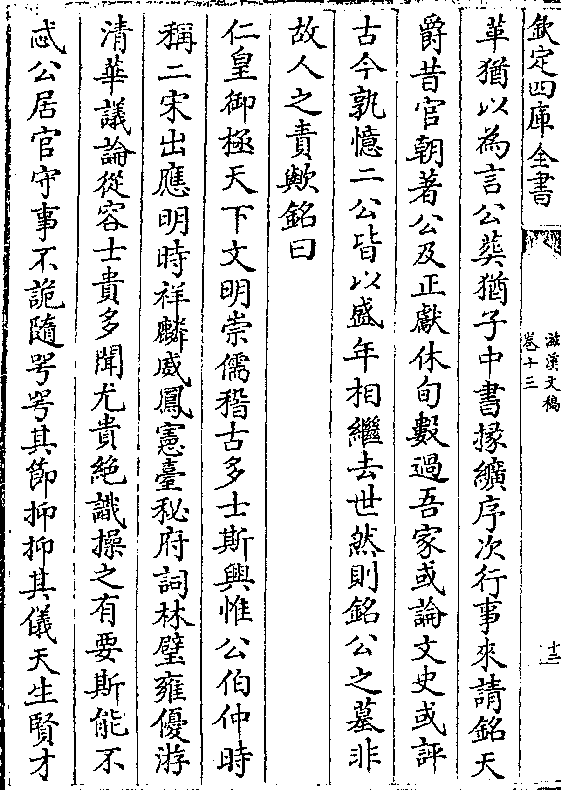 欽定四庫全書
滋溪文稿
卷十三
十三
革猶以為言公葬猶子中書掾纊序次行事來請銘天
爵昔官朝著公及正獻休旬數過吾家或論文史或評
古今孰憶二公皆以盛年相繼去世然則銘公之墓非
故人之責歟銘曰
仁皇御極天下文明崇儒稽古多士斯興惟公伯仲時
稱二宋出應明時祥麟威鳳憲臺秘府詞林璧雍優游
清華議論從容士貴多聞尤貴絶識操之有要斯能不
忒公居官守事不詭隨咢咢其節抑抑其儀天生賢才